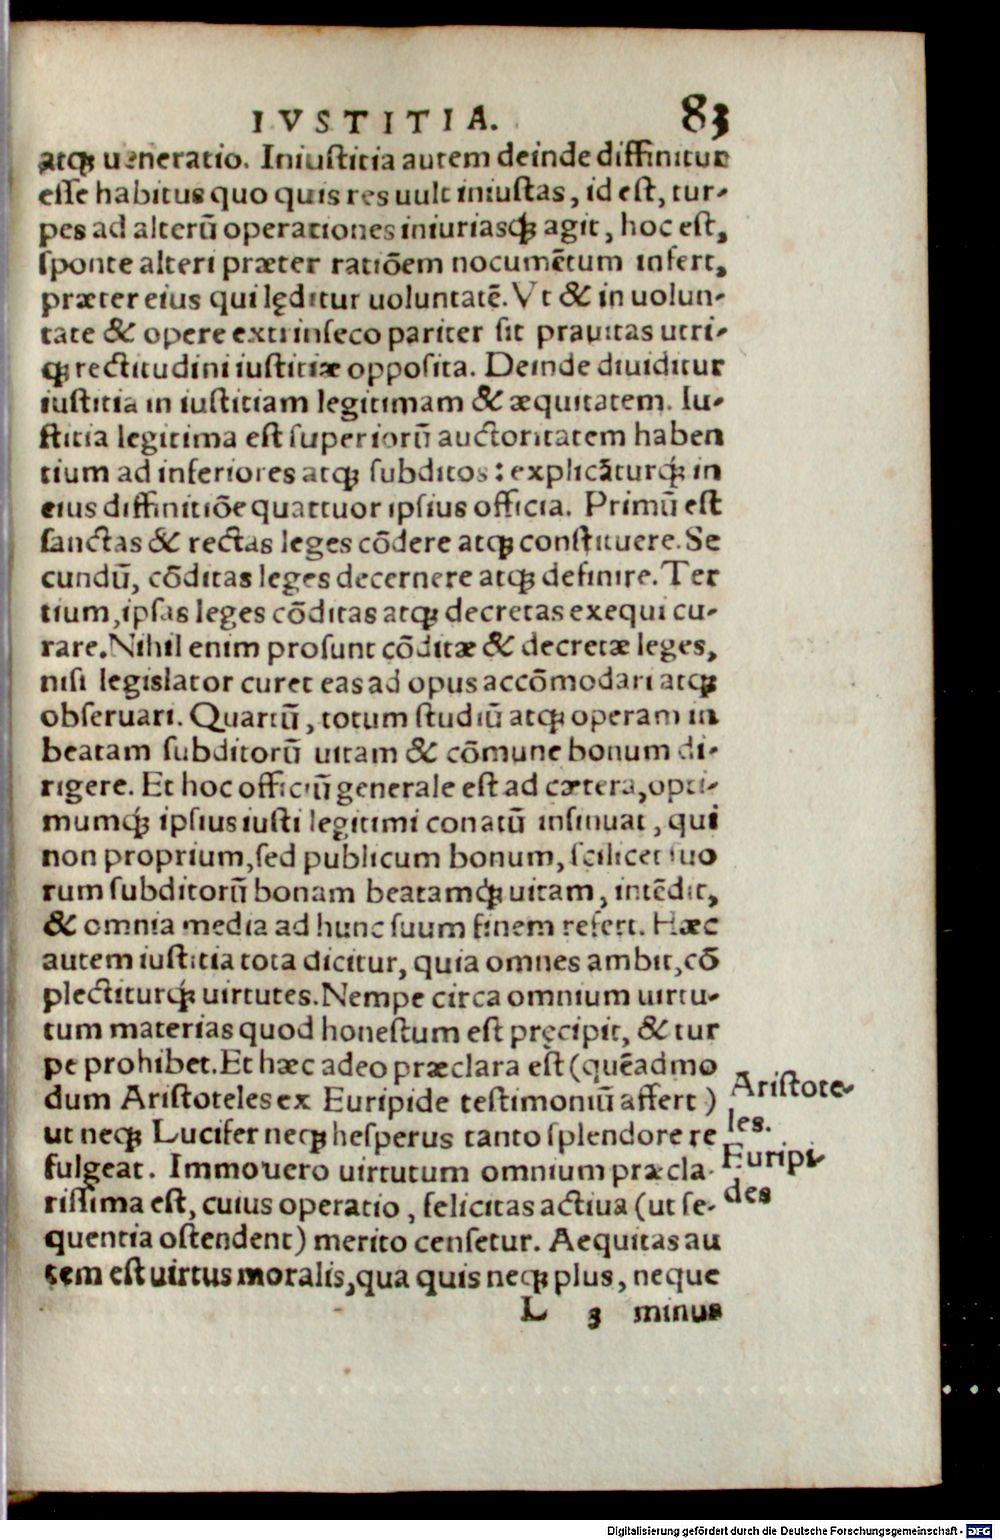 IVSTITIA. 83
atqꝫ ueneratio. Iniustitia autem deinde diffinitur
esse habitus quo quis res uult iniustas, id est, tur-
pes ad alterū operationes iniuriasqꝫ agit, hoc est,
sponte alteri præter ratiōem nocumētum infert,
præter eius qui lęditur uoluntatē. Vt & in uolun-
tate & opere extrinseco pariter sit prauitas utri-
qꝫ rectitudini iustitiæ opposita. Deinde diuiditur
iustitia in iustitiam legitimam & æquitatem. Iu-
stitia legitima est superiorū auctoritatem haben
tium ad inferiores atqꝫ subditos: explicāturqꝫ in
eius diffinitiōe quattuor ipsius officia. Primū est
sanctas & rectas leges cōdere atqꝫ constituere. Se
cundū, cōditas leges decernere atqꝫ definire. Ter
tium, ipsas leges cōditas atqꝫ decretas exequi cu-
rare. Nihil enim prosunt cōditæ & decretæ leges,
nisi legislator curet eas ad opus accōmodari atqꝫ
obseruari. Quartū, totum studiū atqꝫ operam in
beatam subditorū uitam & cōmune bonum di-
rigere. Et hoc officiū generale est ad cætera, opti-
mumqꝫ ipsius iusti legitimi conatū insinuat, qui
non proprium, sed publicum bonum, scilicet suo
rum subditorū bonam beatamqꝫ uitam, intēdit,
& omnia media ad hunc suum finem refert. Hæc
autem iustitia tota dicitur, quia omnes ambit, cō
plectiturqꝫ uirtutes. Nempe circa omnium uirtu-
tum materias quod honestum est pręcipit, & tur
pe prohibet. Et hæc adeo præclara est (quēadmo
dum Aristoteles ex Euripide testimoniū affert)
ut neqꝫ Lucifer neqꝫ hesperus tanto splendore re
fulgeat. Immo uero uirtutum omnium præcla-
rissima est, cuius operatio, felicitas actiua (ut se-
quentia ostendent) merito censetur. Aequitas au
tem est uirtus moralis, qua quis neqꝫ plus, neque
L 3 minus
Aristote-
les.
Euripi-
des